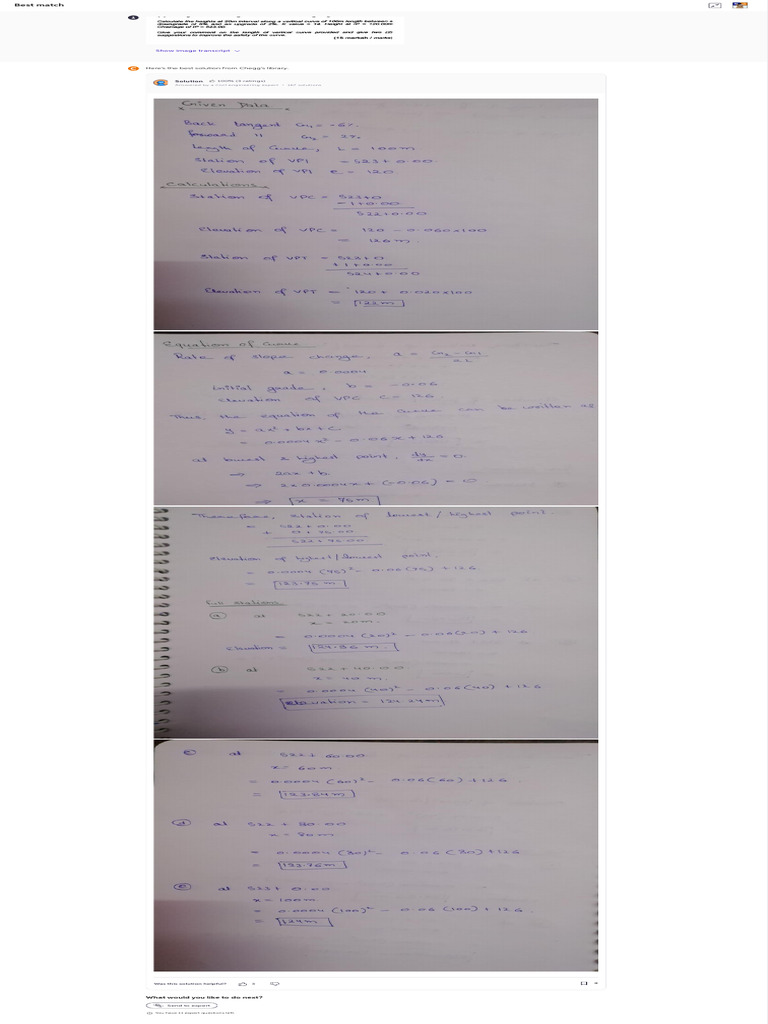 Best match
Calculate the heights at 20m interval along a vertical curve of 100m length between a
downgrade of 6% and an upgrade of 2%.
Give your comment on the length of vertical curve provided and give two (2)
suggestions to improve the safety of the curve.
(15 marks)
Show image transcript
Here's the best solution from Chegg's library.
Solution
Given Data
Back tangent G1 = -6%
forward " G2 = 2%
Length of Curve, L = 100m
Station of VPI = 523+0.00
Elevation of VPI e = 120
Calculations
Station of VPC = 523+0
-1+0.00
522+0.00
Elevation of VPC = 120 - 0.060x100
= 126m
Station of VPT = 523+0
+1+0.00
524+0.00
Elevation of VPT = 120 + 0.020x100
= 122m
Equation of Curve
Rate of slope change, a = G2 - G1
2L
a = 0.0004
Initial grade, b = -0.06
Elevation of VPC C = 126
Thus, the equation of the Curve can be written as
y = ax² + bx + C
= 0.0004x² - 0.06x + 126
at lowest & highest point, dy/dx = 0
=> 2ax + b
=> 2x0.0004x + (-0.06) = 0
=> x = 75m
Therefore, station of lowest/highest point
= 522+0.00
+ 0+75.00
522+75.00
Elevation of highest/lowest point.
= 0.0004(75)² - 0.06(75) + 126
= 123.75m
For stations
(a) at 522+20.00
x = 20m.
= 0.0004(20)² - 0.06(20) + 126
Elevation = 124.96 m.
(b) at 522+40.00
x = 40 m.
= 0.0004(40)² - 0.06(40) + 126
Elevation = 124.24m
(c) at 522+60.00
x = 60m
= 0.0004(60)² - 0.06(60) + 126
= 123.84m
(d) at 522+80.00
x = 80m
= 0.0004(80)² - 0.06(80) + 126
= 123.76m
(e) at 523+0.00
x = 100m
= 0.0004(100)² - 0.06(100) + 126
= 124m
Was this solution helpful?
What would you like to do next?
Send to expert